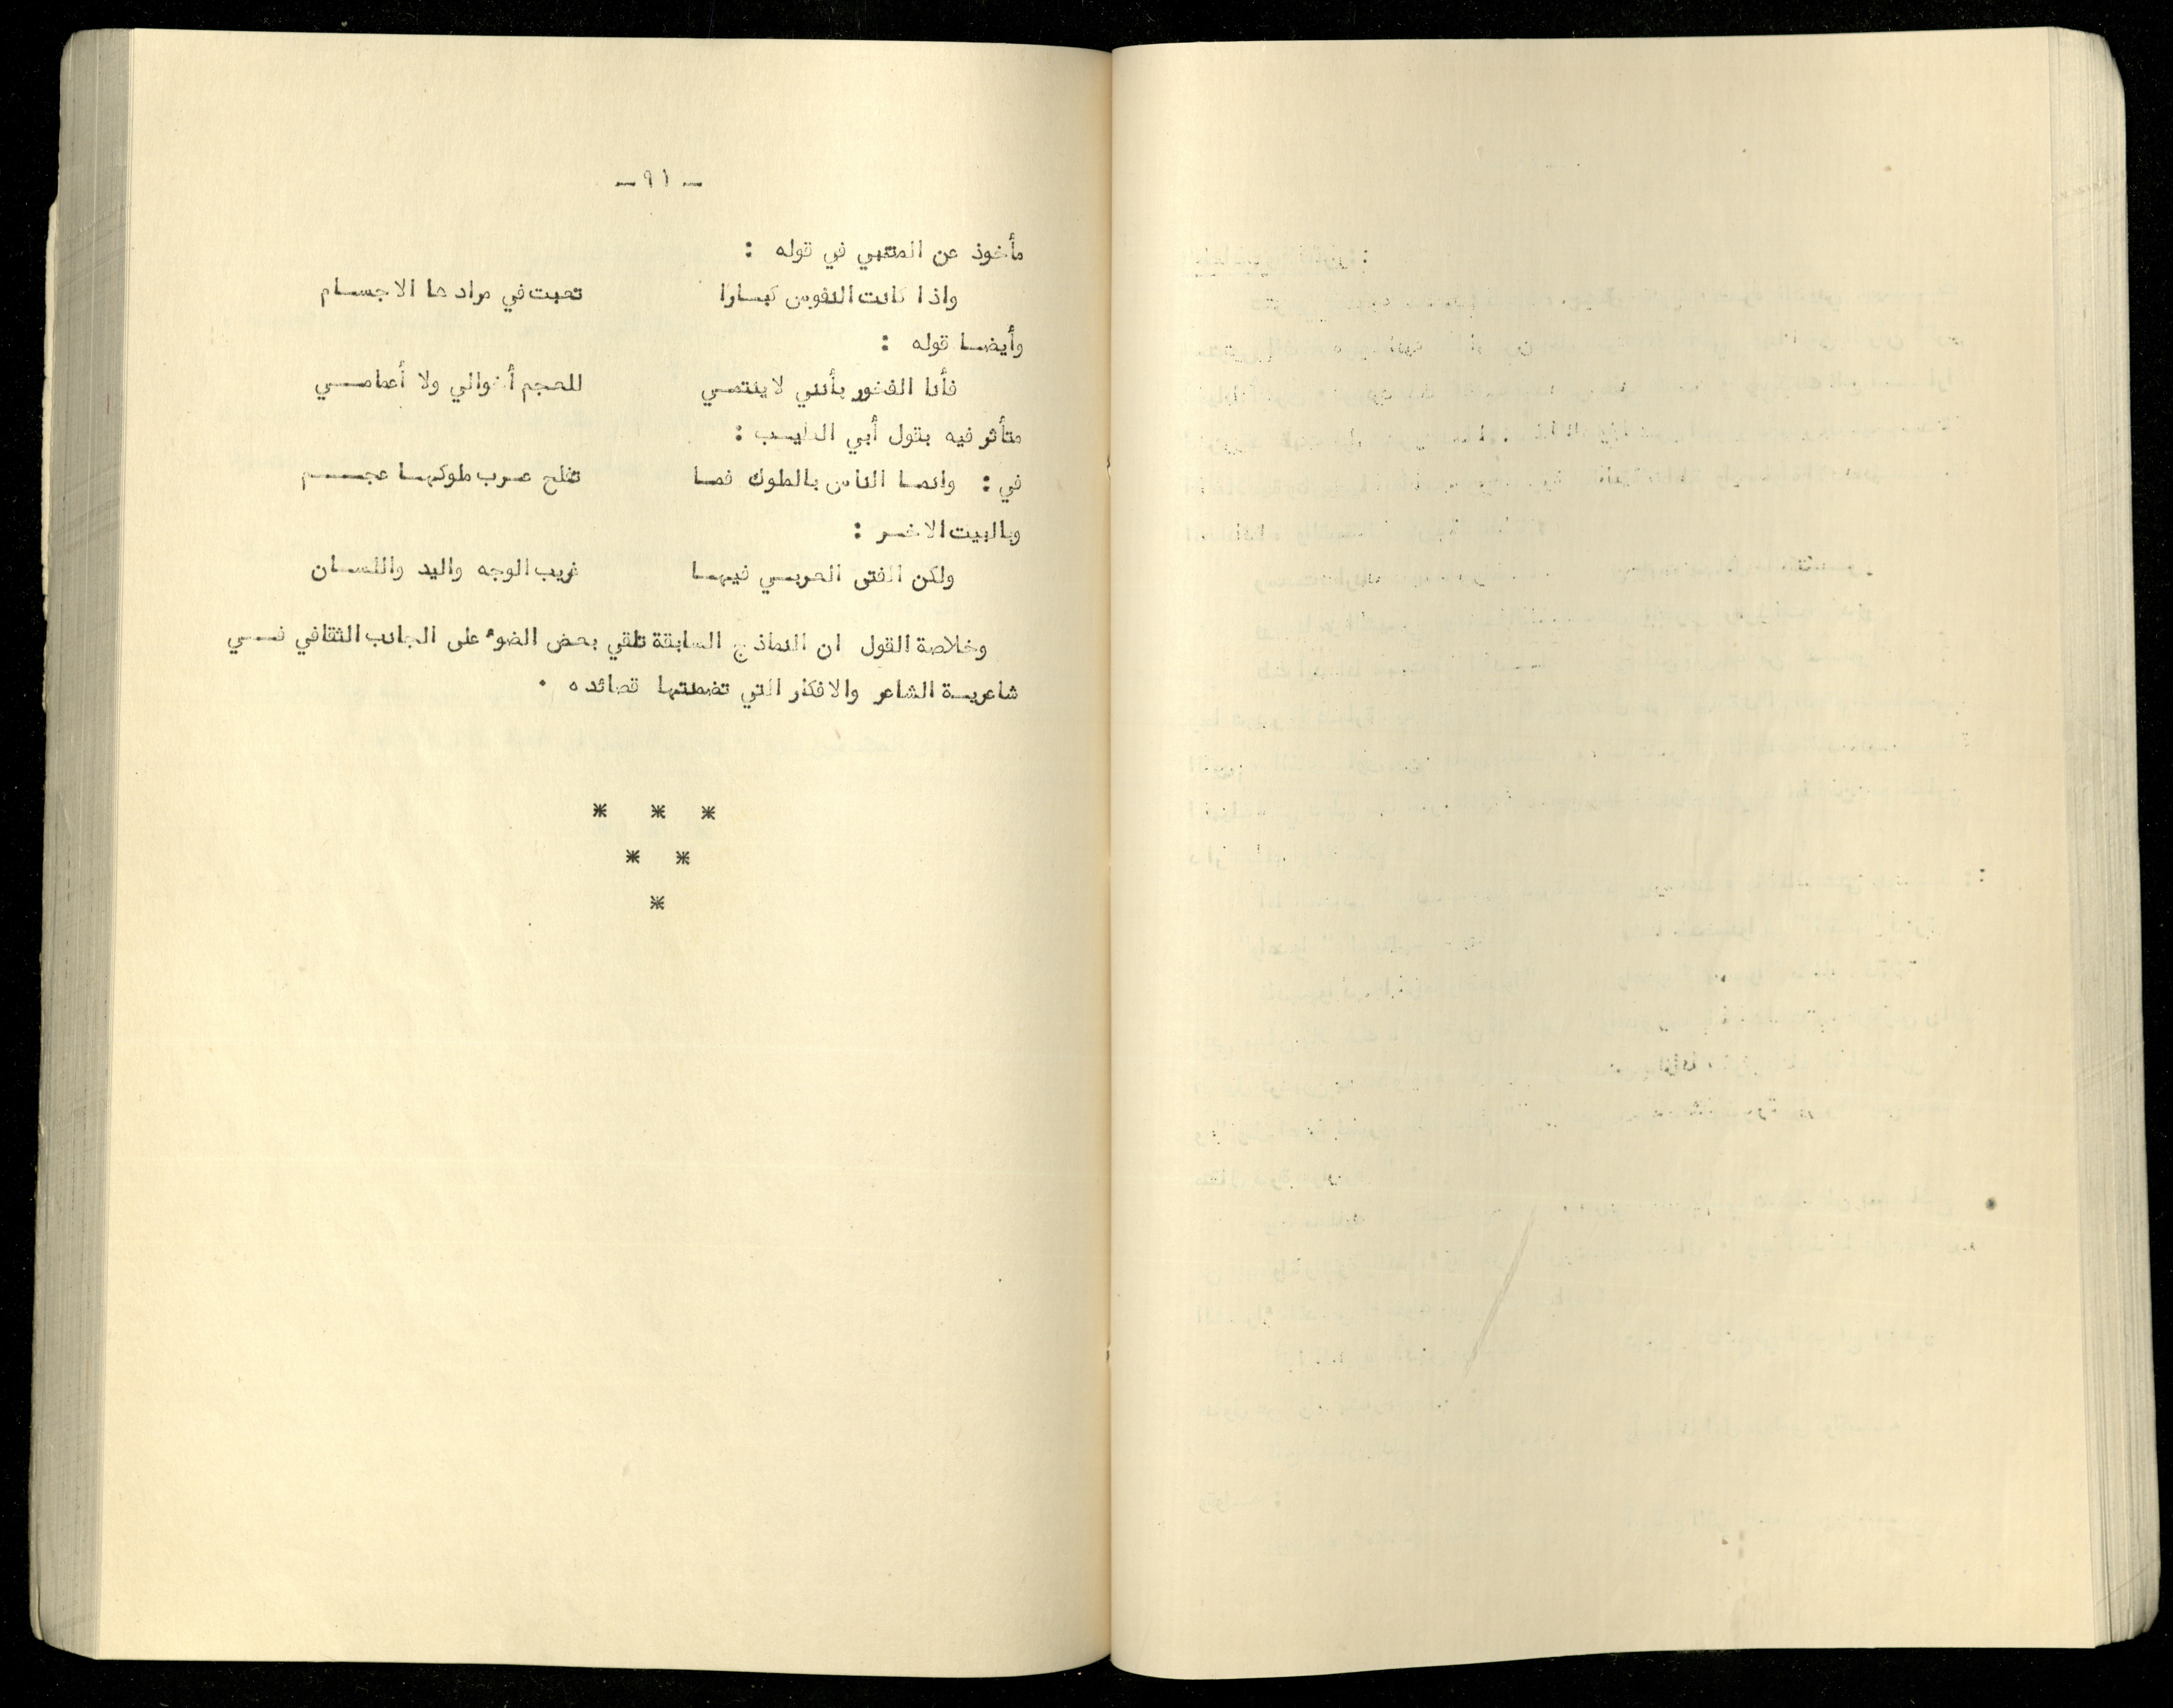 - ٩١ -
مأخوذ عن المتنبي في قوله :
واذا كانت النفوس كبـارا تعبت في مرادها الاجسـام
وأيضـا قوله :
فأنا الفخور بأنني لا ينتمـي للعجم أخوالي ولا أعمامـي
متأثر فيه بقول أبي الطيـب :
في : وانمـا الناس بالملوك فمـا تفلح عـرب ملوكهـا عجـم
وبالبيت الاخـر :
ولكن الفتى العربـي فيهـا غريب الوجه واليد واللسـان
وخلاصة القول ان النماذج السابقة تلقي بعض الضوء على الجانب الثقافي فـي
شاعريـة الشاعر والافكار التي تضمنتها قصائده .
* * *
* *
*